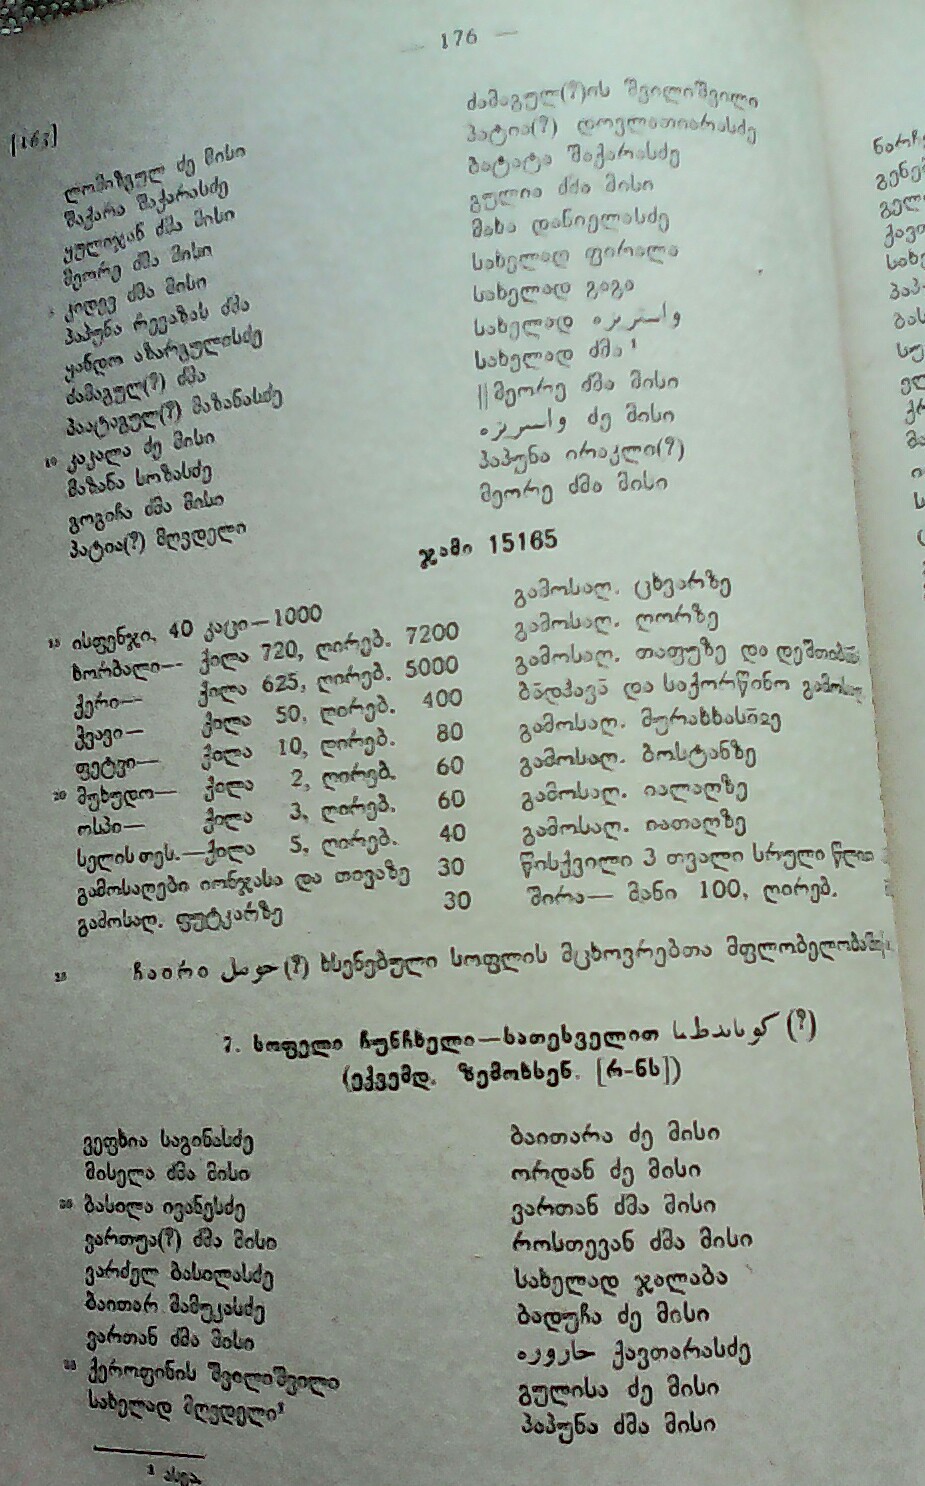 — 176 —
[163]
ლომიზგულ ძე მისი
შაქარა შაქარასძე
ყულიჯან ძმა მისი
მეორე ძმა მისი
კიდევ ძმა მისი
პაპუნა რევაზას ძმა
ყანდო აზარგულისძე
ძამაგულ(?) ძმა
პაატაგულ(?) მაზანასძე
10 კაკალა ძე მისი
მაზანა სოზასძე
გოგიჩა ძმა მისი
პატია(?) მღვდელი
ძამაგულ(?)ის შვილიშვილი
პატია(?) დოვლათიარასძე
ბატატა შაქარასძე
გულია ძმა მისი
მახა დანიელასძე
სახელად ფირალა
სახელად გოგა
სახელად
სახელად ძმა¹
||მეორე ძმა მისი
ძე მისი
პაპუნა ირაკლი(?)
მეორე ძმა მისი
ჯამი 15165
15 ისფენჯი, 40 კაცი—1000
ხორბალი— ქილა 720, ღირებ. 7200
ქერი— ქილა 625, ღირებ. 5000
ჭვავი— ქილა 50, ღირებ. 400
ფეტვი— ქილა 10, ღირებ. 80
20 მუხუდო— ქილა 2, ღირებ. 60
ოსპი— ქილა 3, ღირებ. 60
სელის თეს.—ქილა 5, ღირებ. 40
გამოსაღები იონჯასა და თივაზე 30
გამოსაღ. ფუტკარზე 30
გამოსაღ. ცხვარზე
გამოსაღ. ღორზე
გამოსაღ. თაფუზე და დეშთიბან
ბადჰავა და საქორწინო გამოსაღ.
გამოსაღ. მურახხასიაზე
გამოსაღ. ბოსტანზე
გამოსაღ. იალაღზე
გამოსაღ. იათაღზე
წისქვილი 3 თვალი სრული წლით
შირა— მანი 100, ღირებ.
25 ჩაირი (?) ხსენებული სოფლის მცხოვრებთა მფლობელობაში
7. სოფელი ჩუნჩხელი—სათესველით (?)
(ექვემდ. ზემოხსენ. [რ-ნს])
ვეფხია საგინასძე
მისელა ძმა მისი
30 ბასილა ივანესძე
ვართუა(?) ძმა მისი
ვარძელ ბასილასძე
ბაითარ მამუკასძე
ვართან ძმა მისი
35 ქეროფინის შვილიშვილი
სახელად მღვდელი¹
ბაითარა ძე მისი
ორდან ძე მისი
ვართან ძმა მისი
როსთევან ძმა მისი
სახელად ჯალაბა
ბადუჩა ძე მისი
ქავთარასძე
გულისა ძე მისი
პაპუნა ძმა მისი
¹ ასეა.